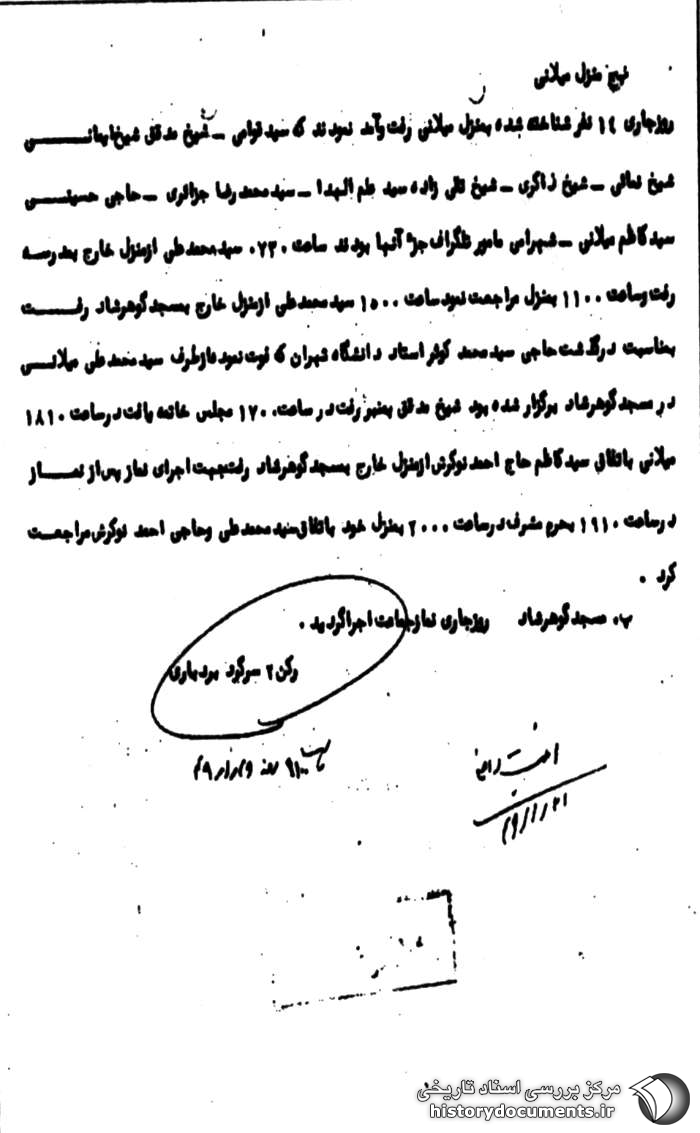 منزل میلانی
روزجاری ۱۴ نفر شناخته شده بمنزل میلانی رفت وآمد نمودند که سید قوامی – شیخ مدقق شیخ
شیخ نمائی – شیخ ذاکری – شیخ تقی زاده سید علم الهدا – سید محمد رضا جزائری – حاجی حسینی
سید کاظم میلانی – شهرامی مامور تلگراف جزء آنها بودند ساعت ۰۷۳۰ سید محمد علی از منزل خارج بمدرسه
رفت وساعت ۱۱۰۰ بمنزل مراجعت نمود ساعت ۱۵۰۰ سید محمد علی از منزل خارج بمسجد گوهرشاد رفت
بمناسبت درگذشت حاجی سید محمد کوثر استاد دانشگاه تهران که فوت نموده از طرف سید محمد علی میلانی
در مسجد گوهرشاد برگزار شده بود شیخ مدقق بمنبر رفت در ساعت ۱۷۰۰ مجلس خاتمه یافت در ساعت ۱۸۱۰
میلانی باتفاق سید کاظم حاج احمد نوکرش از منزل خارج بمسجد گوهرشاد رفت جهت اجرای نماز پس از نماز
در ساعت ۱۹۱۰ بحرم مشرف در ساعت ۲۰۰۰ بمنزل خود باتفاق سید محمد علی وحاجی احمد نوکرش مراجعت
کرد .
ب. مسجد گوهرشاد روزجاری نماز جماعت اجرا گردید .
رکن ۲ سرگرد بردباری
مرکز بررسی اسناد تاریخی
historydocuments.ir